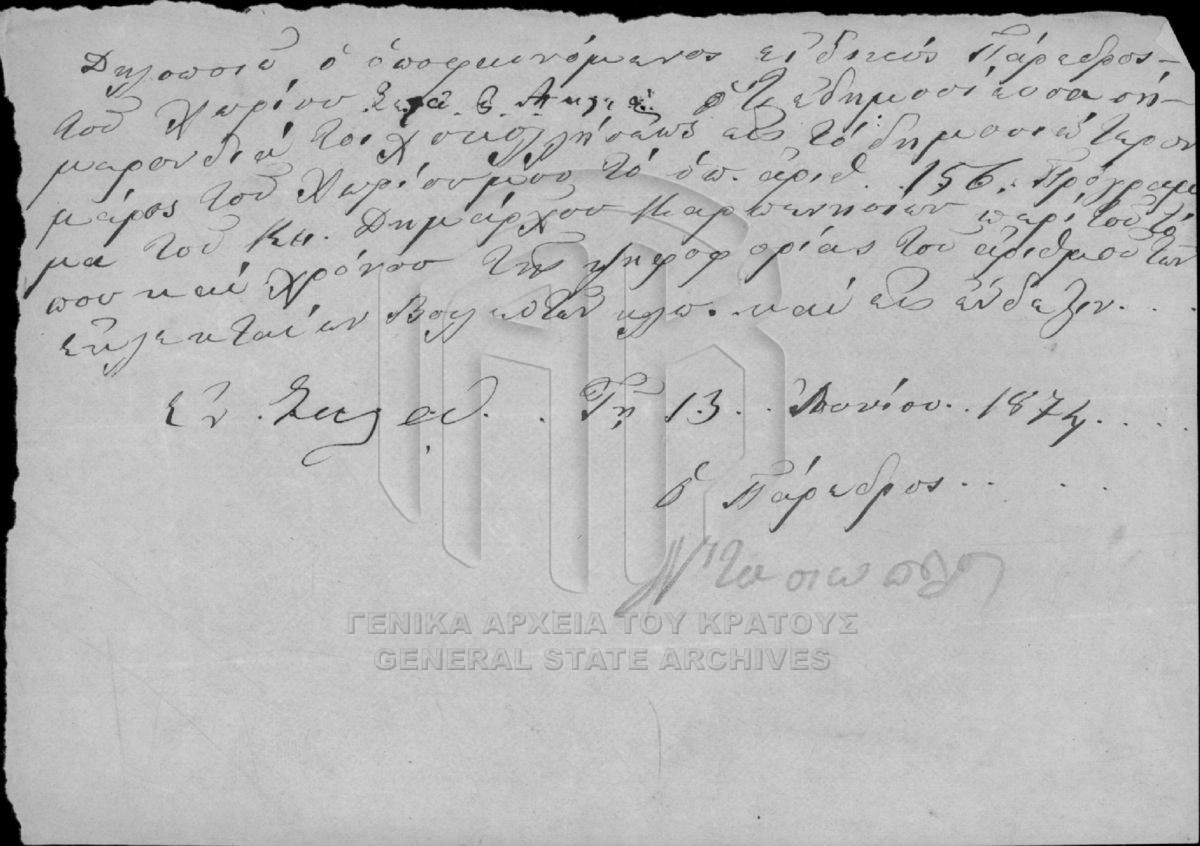 Δηλοποιῶ ὁ ὑποφαινόμενος εἰδικός Πάρεδρος
τοῦ Χωρίου ὅτι ἐδημοσίευσα σή-
μερον διά τοιχοκολλήσεως εἰς τό δημοσιώτερον
μέρος τοῦ Χωρίου μου τό ὑπ. ἀριθ. 156. Πρόγραμ
μα τοῦ Κυ. Δημάρχου Καρπενησίων περί τοῦ τό
που καί χρόνου τῆς ψηφοφορίας τοῦ ἀριθμοῦ τῶν
ἐκλεκταίων Βουλευτῶν κλπ. καί εἰς ἔνδειξιν...
Ἐν. Τῇ 13.. Ἰουνίου.. 1874....
Ὁ Πάρεδρος...
ΓΕΝΙΚΑ ΑΡΧΕΙΑ ΤΟΥ ΚΡΑΤΟΥΣ
GENERAL STATE ARCHIVES